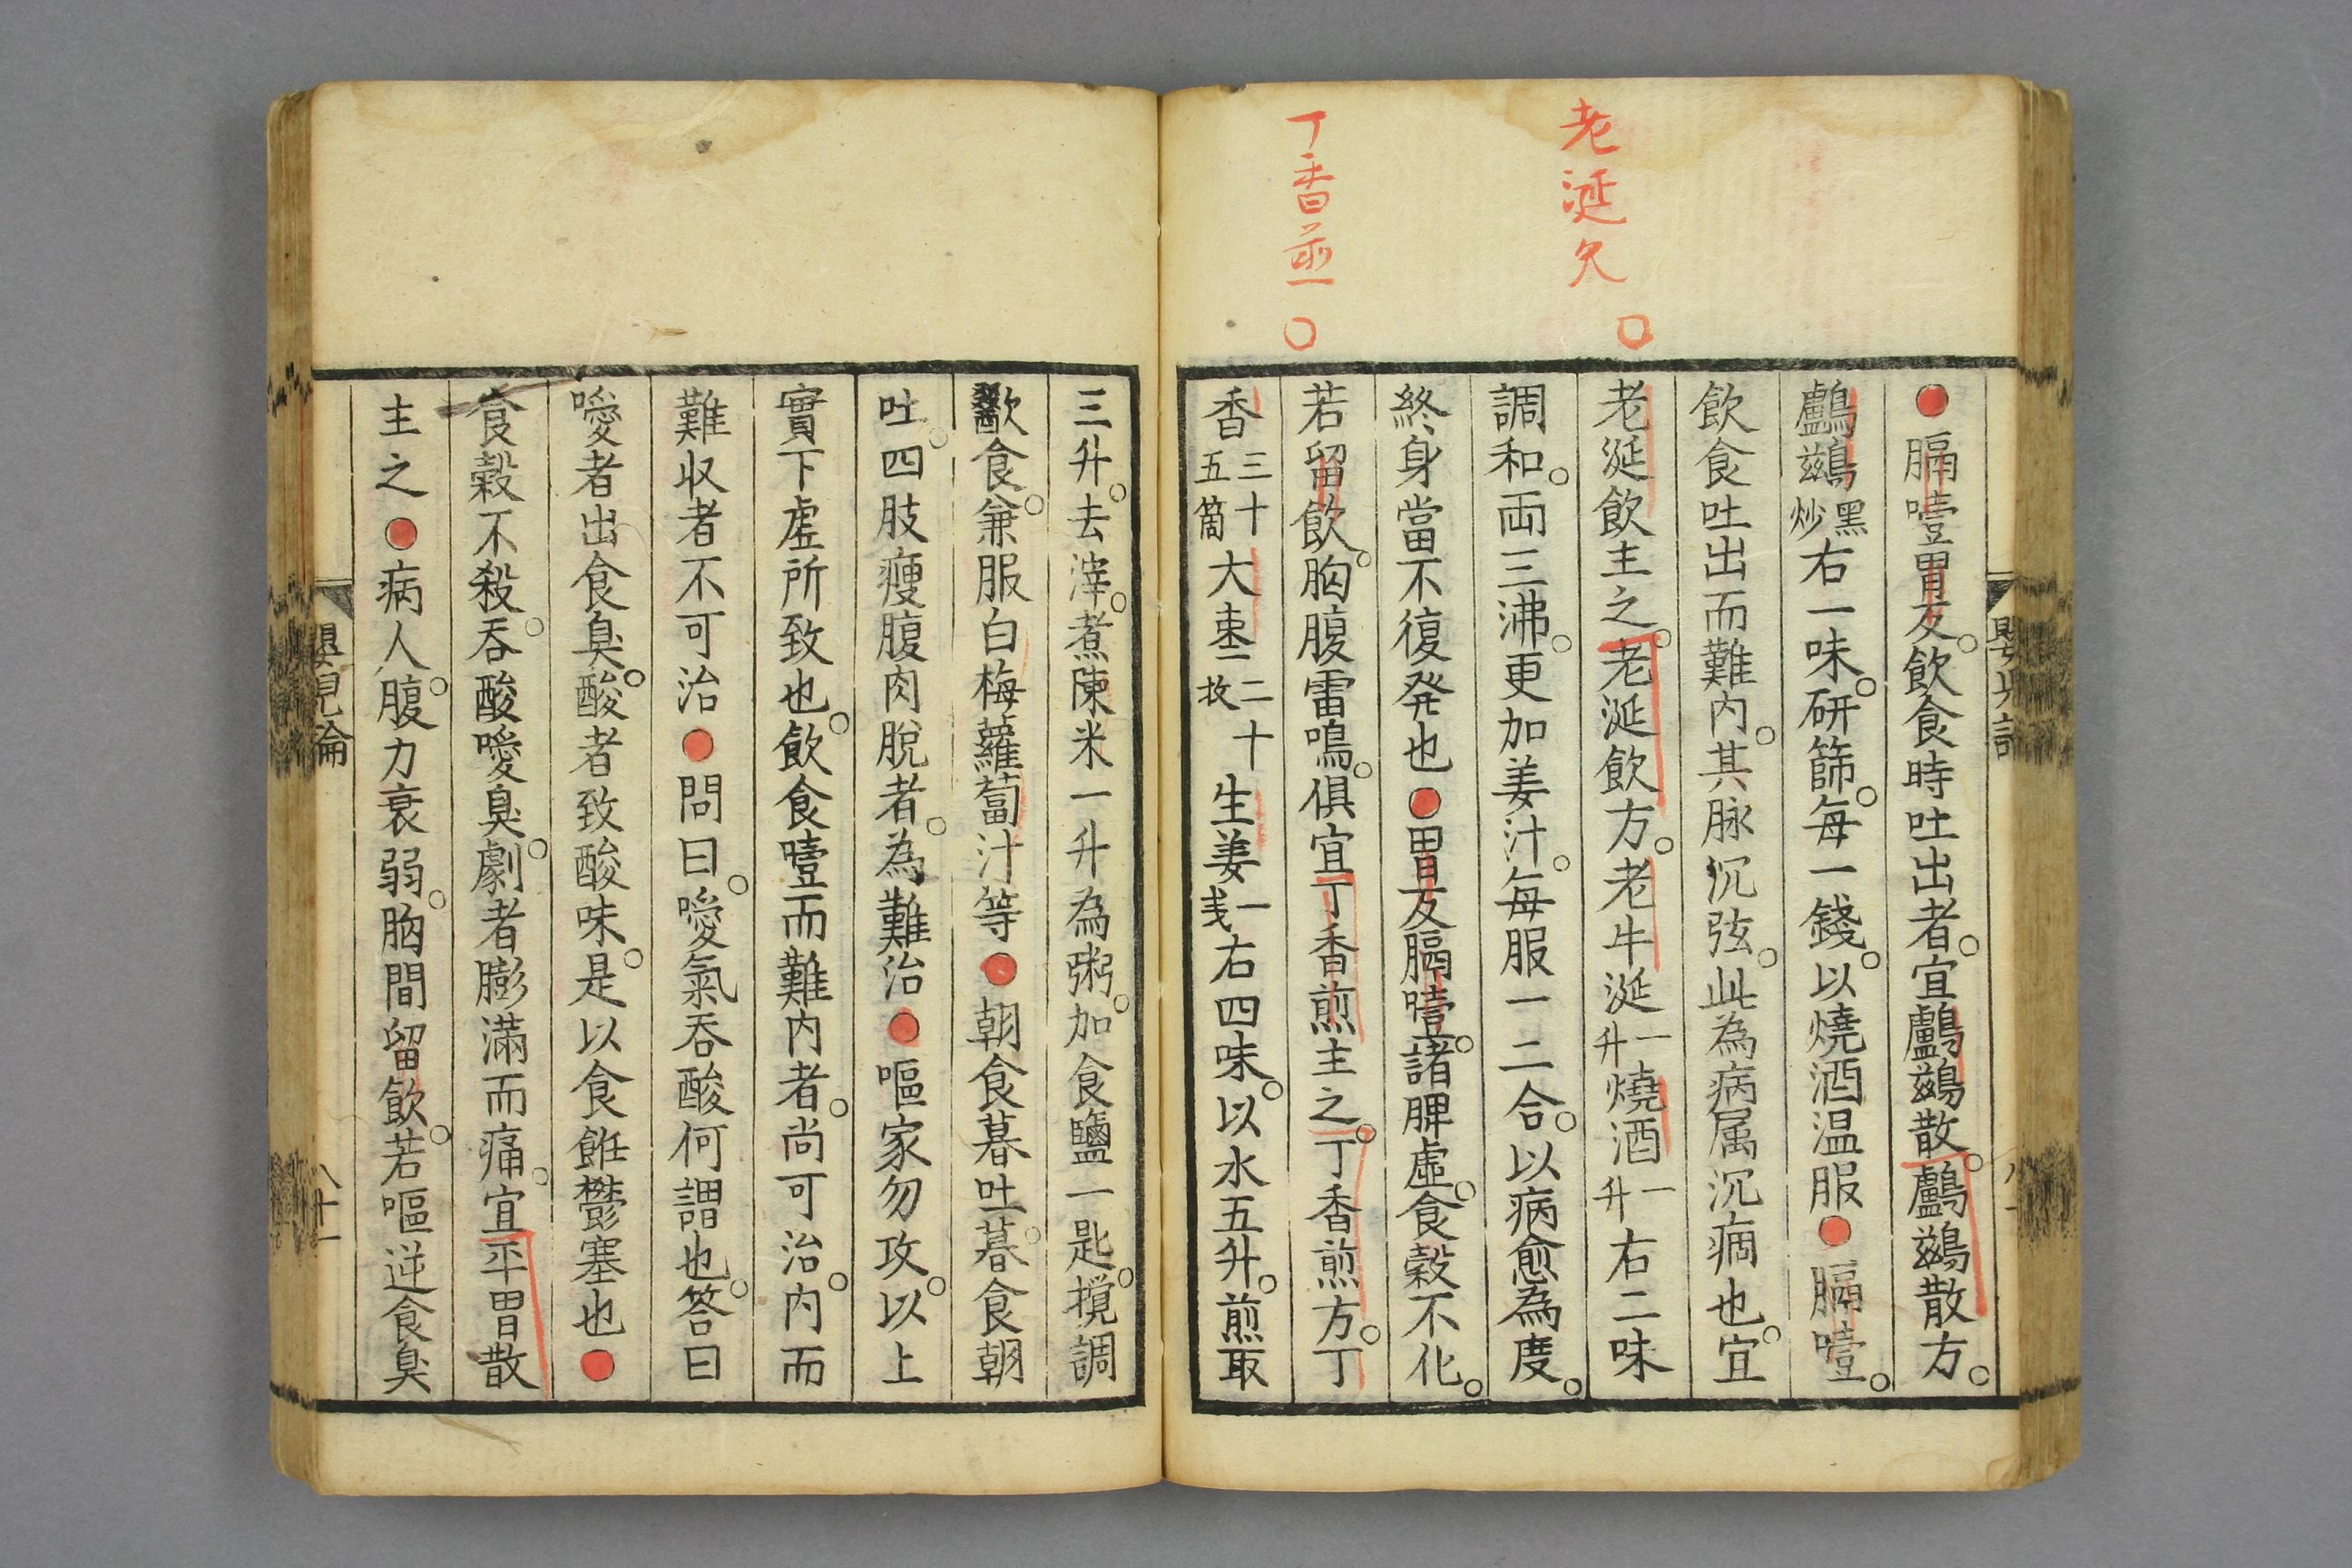 老涎欠
丁香煎
●膈噎胃反。飲食時吐出者。宜鸕鷀散。鸕鷀散方。
鸕鷀黑炒右一味。研篩。每一錢。以燒酒温服●膈噎。
飲食吐出而難内。其脉沉弦。此為病属沉痼也。宜
老涎飲主之。老涎飲方。老牛涎一升燒酒一升右二味
調和。両三沸。更加姜汁。每服一二合。以病愈為度。
終身當不復発也●胃反膈噎。諸脾虛。食穀不化。
若留飲。胸腹雷鳴。俱宜丁香煎主之。丁香煎方。丁
香三十五箇大枣二十二枚生姜一戋右四味。以水五升。煎取
三升。去滓。煮陳米一升為粥。加食鹽一匙。攪調
歠食。兼服白梅蘿蔔汁等●朝食暮吐。暮食朝
吐。四肢瘦腹肉脫者。為難治●嘔家勿攻。以上
實下虛所致也。飲食噎而難内者。尚可治。内而
難収者不可治●問曰。噯氣吞酸何謂也。答曰
噯者出食臭。酸者致酸味。是以食飪鬱塞也●
食穀不殺。吞酸噯臭。劇者膨滿而痛。宜平胃散
主之●病人。腹力衰弱。胸間留飲。若嘔逆食臭
八十一